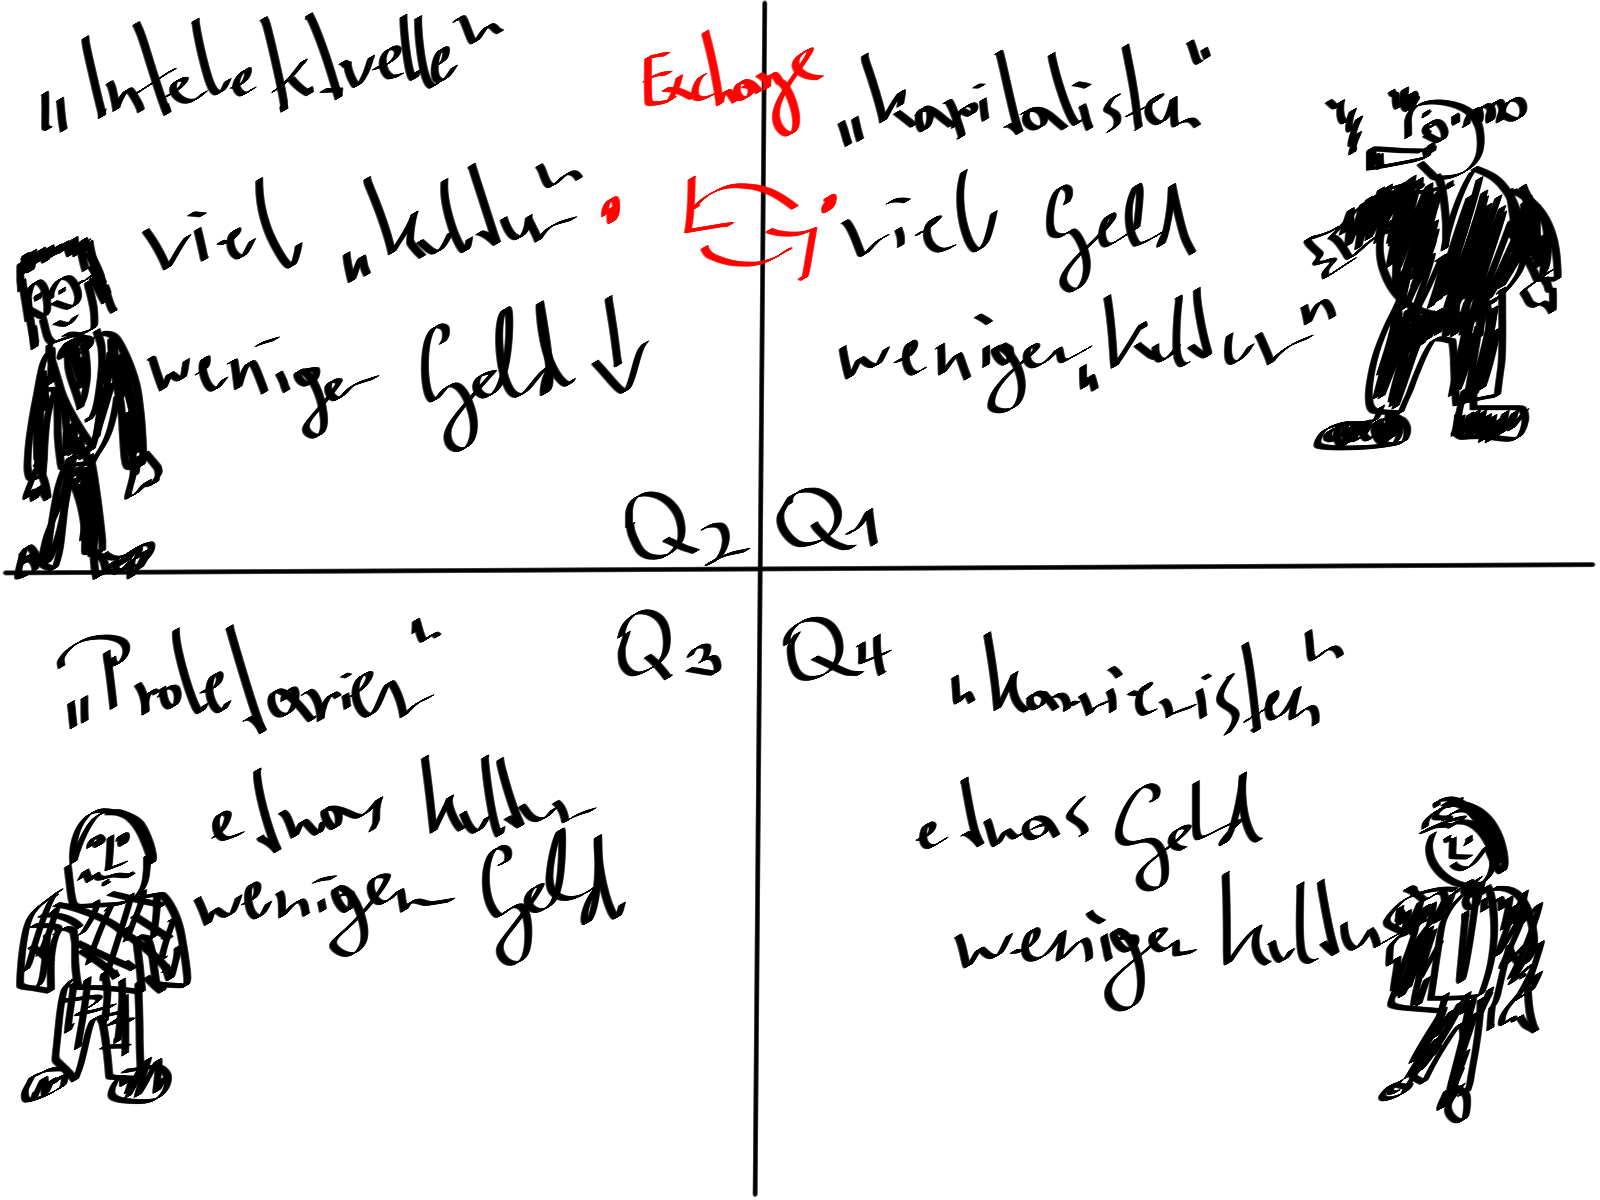 „Intelektuelle“
viel „Kultur“
weniger Geld ↓
Q2
Exchange
„Kapitalisten“
viel Geld
weniger „Kultur“
Q1
„Proletarier“
etwas Kultur
weniger Geld
Q3
Q4
"Karrieristen"
etwas Geld
weniger Kultur